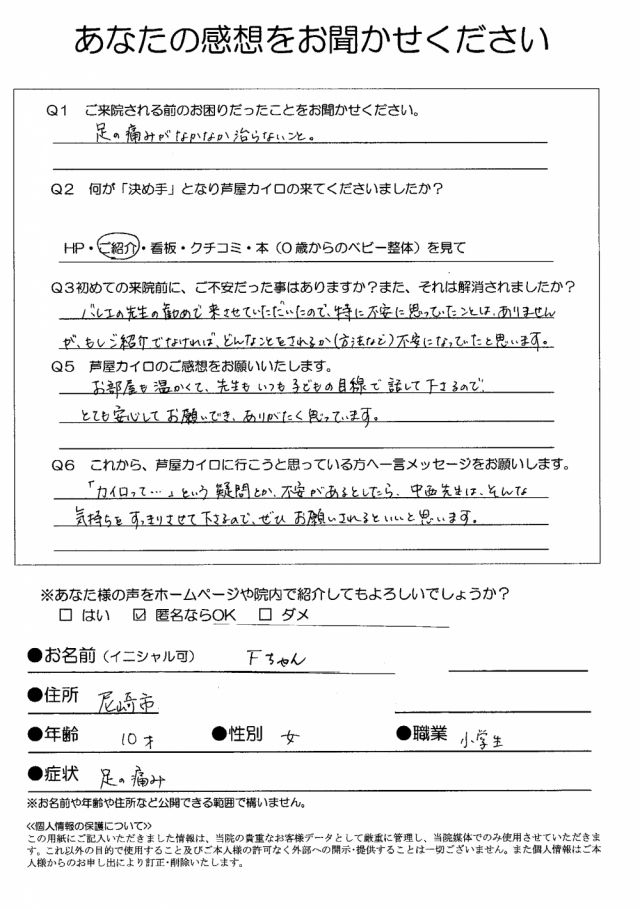 あなたの感想をお聞かせください
Q1 ご来院される前のお困りだったことをお聞かせください。
足の痛みがなかなか治らないこと。
Q2 何が「決め手」となり芦屋カイロの来てくださいましたか？
HP・ご紹介・看板・クチコミ・本（0歳からのベビー整体）を見て
Q3初めての来院前に、ご不安だった事はありますか？また、それは解消されましたか？
バレエの先生の勧めで来させていただいたので、特に不安に思っていたことは、ありません
が、もしご紹介でなければ、どんなことをされるか（方法など）不安になっていたと思います。
Q5 芦屋カイロのご感想をお願いいたします。
お部屋も温かくて、先生もいつも子どもの目線で話して下さるので、
とても安心してお願いでき、ありがたく思っています。
Q6 これから、芦屋カイロに行こうと思っている方へ一言メッセージをお願いします。
「カイロって…」という疑問とか、不安があるとしたら、中西先生は、そんな
気持ちをすっきりさせて下さるので、ぜひお願いされるといいと思います。
※あなた様の声をホームページや院内で紹介してもよろしいでしょうか？
□ はい ☑ 匿名ならOK □ ダメ
●お名前（イニシャル可） Fちゃん
●住所 尼崎市
●年齢 10才 ●性別 女 ●職業 小学生
●症状 足の痛み
※お名前や年齢や住所など公開できる範囲で構いません。
≪個人情報の保護について≫
この用紙にご記入いただきました情報は、当院の貴重なお客様データとして厳重に管理し、当院媒体でのみ使用させていただきま
す。これ以外の目的で使用すること及びご本人様の許可なく外部への開示・提供することは一切ございません。また個人情報はご本
人様からのお申し出により訂正・削除いたします。